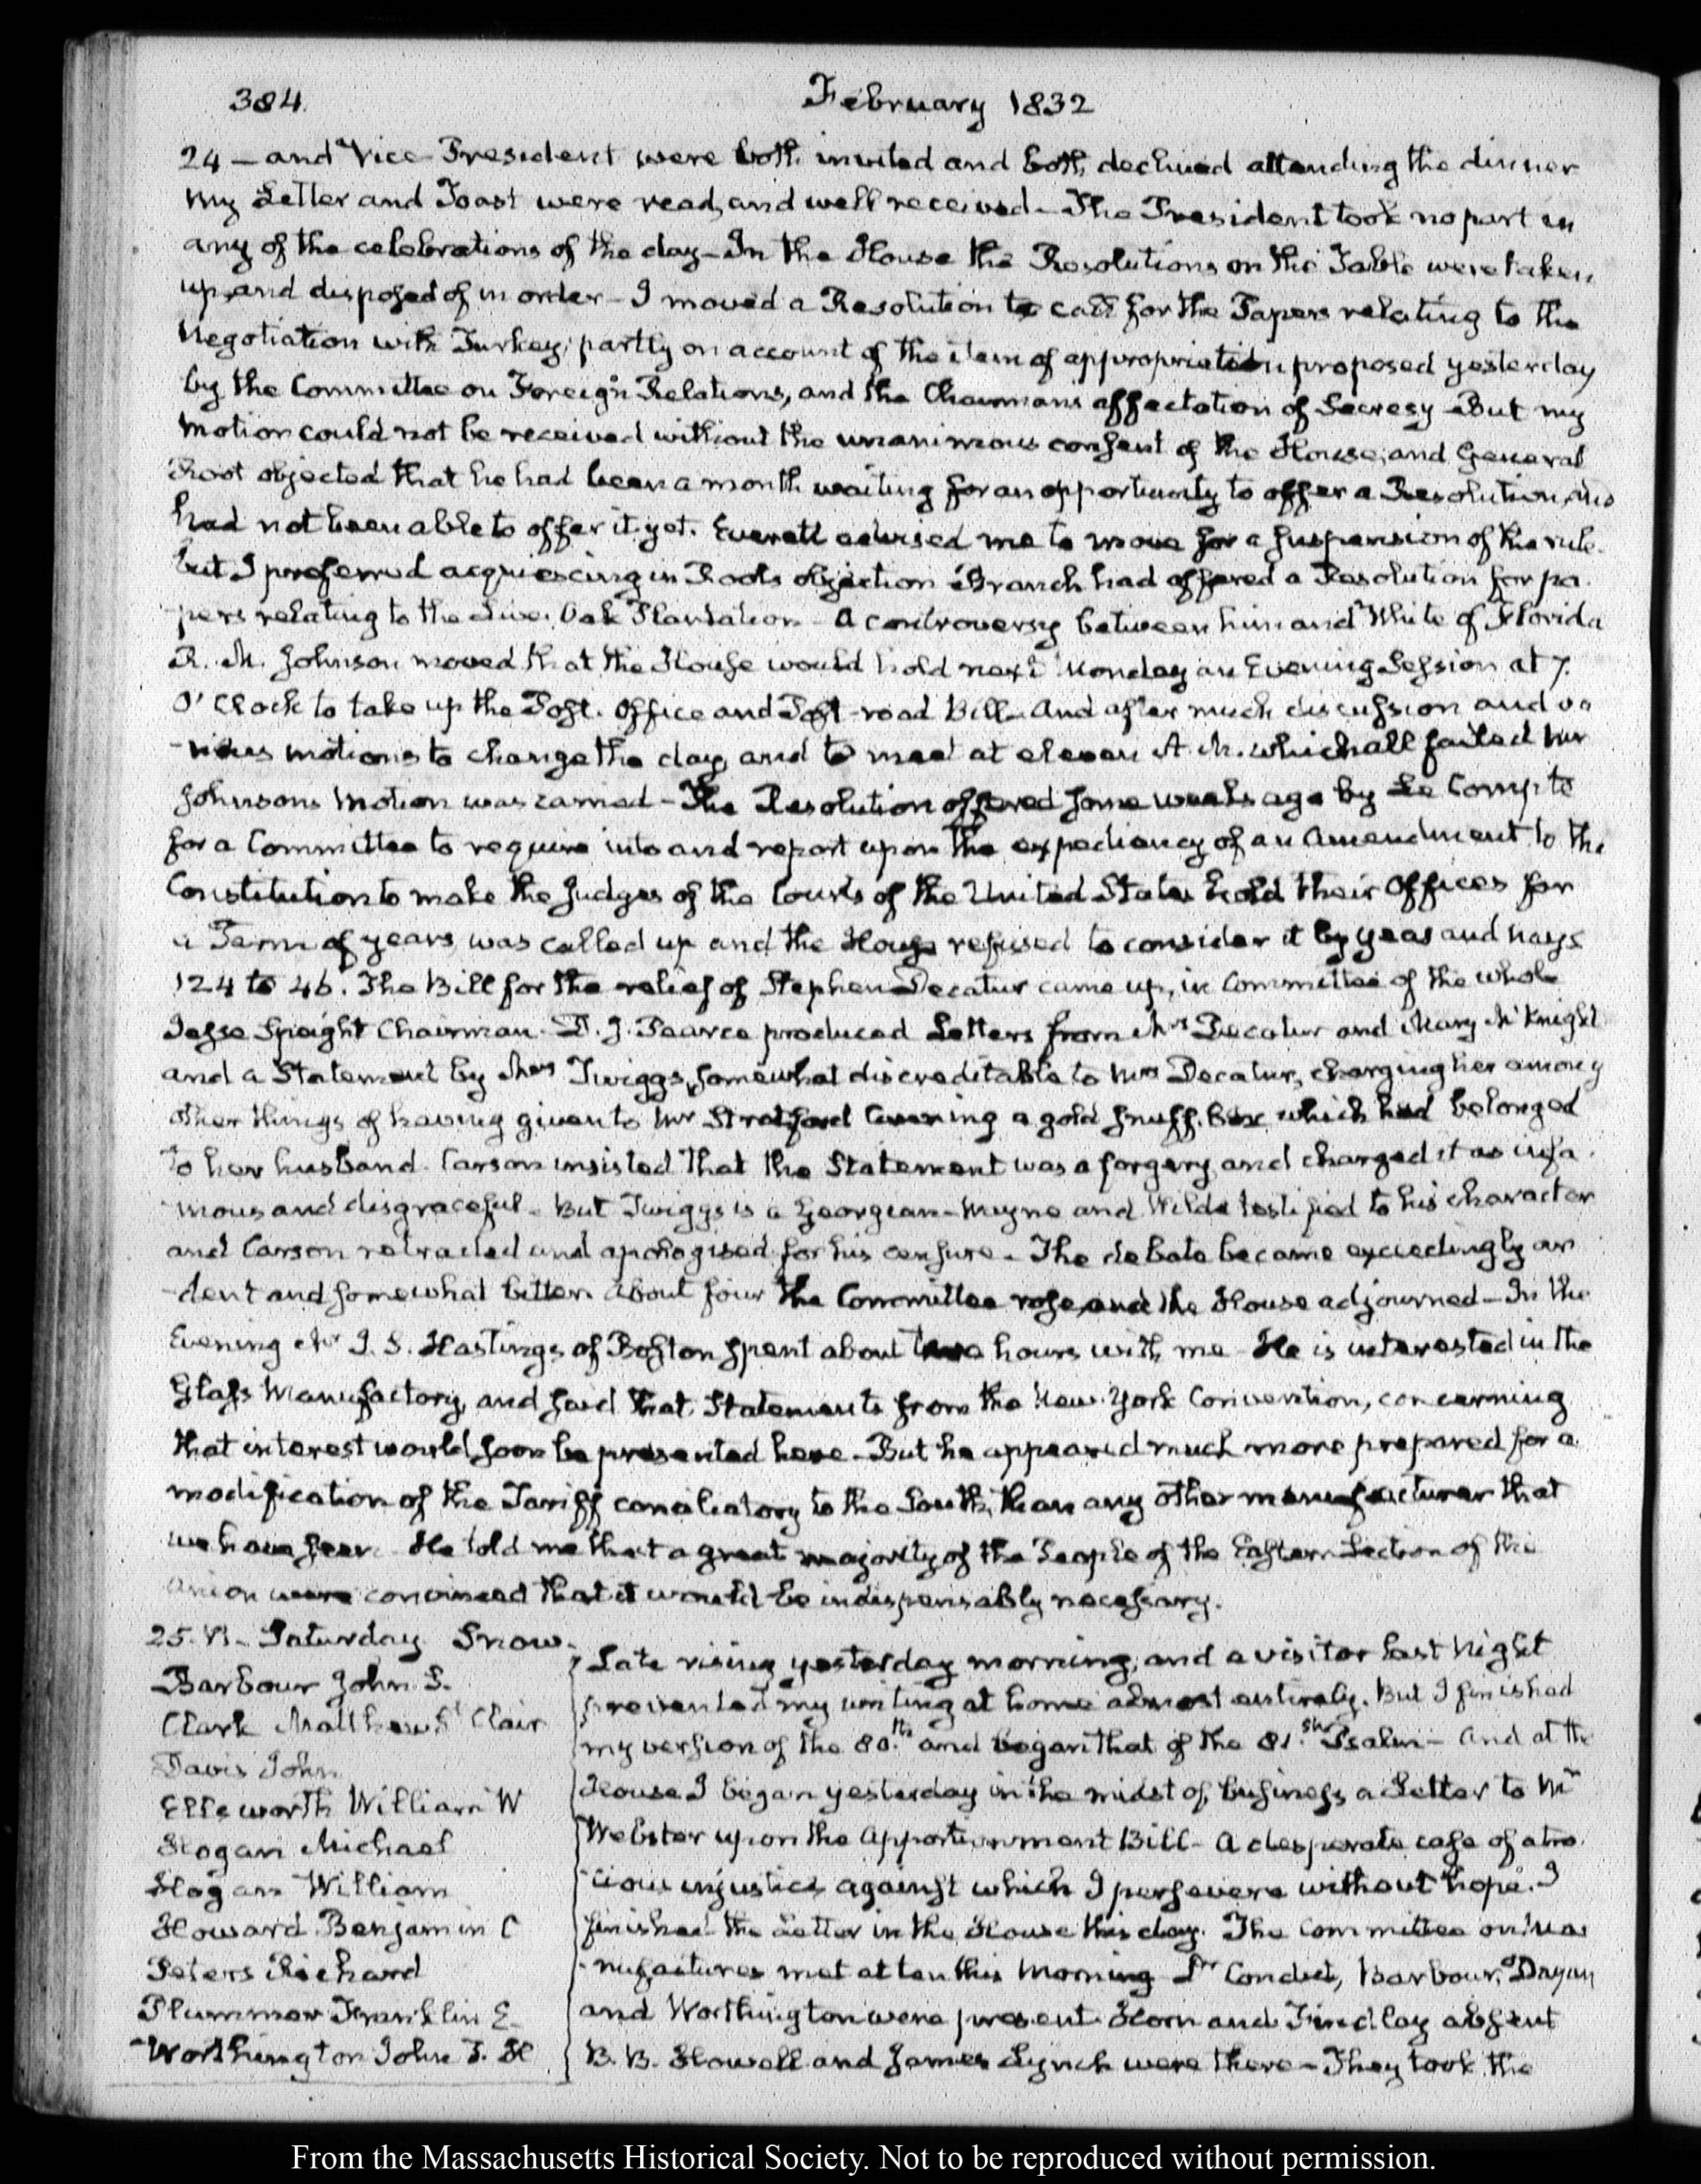 384.
February 1832
24 — and Vice-President were both invited and both declined attending the dinner
My Letter and Toast were read, and well received — The President took no part in
any of the celebrations of the day — In the House the Resolutions on the Table were taken
up, and disposed of in order — I moved a Resolution to call for the Papers relating to the
Negotiation with Turkey; partly on account of the item of appropriation proposed yesterday
by the Committee on Foreign Relations, and the Chairman's affectation of Secresy — But my
motion could not be received without the unanimous consent of the House, and General
Root objected that he had been a month waiting for an opportunity to offer a Resolution, and
had not been able to offer it yet. Everett advised me to move for a suspension of the rule.
but I preferred acquiescing in Roots objection Branch had offered a Resolution for pa-
-pers relating to the Live Oak Plantation — A controversy between him and White of Florida
R. M. Johnson moved that the House would hold next Monday an Evening Session at 7.
O'Clock to take up the Post-Office and Post-road Bill. And after much discussion and va
-rious motions to change the day, and to meet at eleven A.M. which all failed Mr
Johnsons motion was carried — The Resolution offered some weeks ago by Le Compte
for a Committee to require into and report upon the expediency of an Amendment to the
Constitution to make the Judges of the Courts of the United States hold their Offices for
a Term of years, was called up and the House refused to consider it by yeas and Nays
124 to 46. The Bill for the relief of Stephen Decatur came up, in Committee of the whole
Jesse Speight Chairman. D. J. Pearce produced Letters from Mrs Decatur and Mary McKnight
and a Statement by Twiggs, somewhat discreditable to Mrs Decatur, charging her among
other things of having given to Mr Stratford Canning a gold snuff-box which had belonged
to her husband. Carson insisted that the Statement was a forgery and charged it as infa-
-mous and disgraceful — But Twiggs is a Georgian — Wayne and Wilde testified to his character
and Carson retracted and apologised for his censure — The debate became exceedingly ar
-dent and somewhat bitter. About four the Committee rose, and the House adjourned — In the
Evening Mr J. S. Hastings of Boston spent about two hours with me He is interested in the
Glass Manufactory, and said that Statements from the New-York Convention, concerning
that interest would soon be presented here — But he appeared much more prepared for a
modification of the Tariff conciliatory to the South, than any other manufacturer that
we have seen. He told me that a great majority of the People of the Eastern Section of the
Union were convinced that it would be indispensably necessary.
25. VI. Saturday Snow.
Barbour John S.
Clark Matthew St Clair
Davis John
Ellsworth William W
Hogan Michael
Hogan William
Howard Benjamin C
Peters Richard
Plummer Franklin E.
Worthington John T. H
Late rising yesterday morning, and a visitor last Night
prevented my writing at home almost entirely. But I finished
my version of the 80.th and began that of the 81.st Psalm — And at the
House I began yesterday in the midst of business a Letter to Mr
Webster upon the Apportionment Bill — A desperate case of atro-
-cious injustice against which I persevere without hope. I
finished the Letter in the House this day. The Committee on Ma
-nufactures met at ten this Morning Dr Condict, Barbour, Dayan
and Worthington were present. Horn and Findlay absent
B. B. Howell and James Lynch were there — They took the
From the Massachusetts Historical Society. Not to be reproduced without permission.